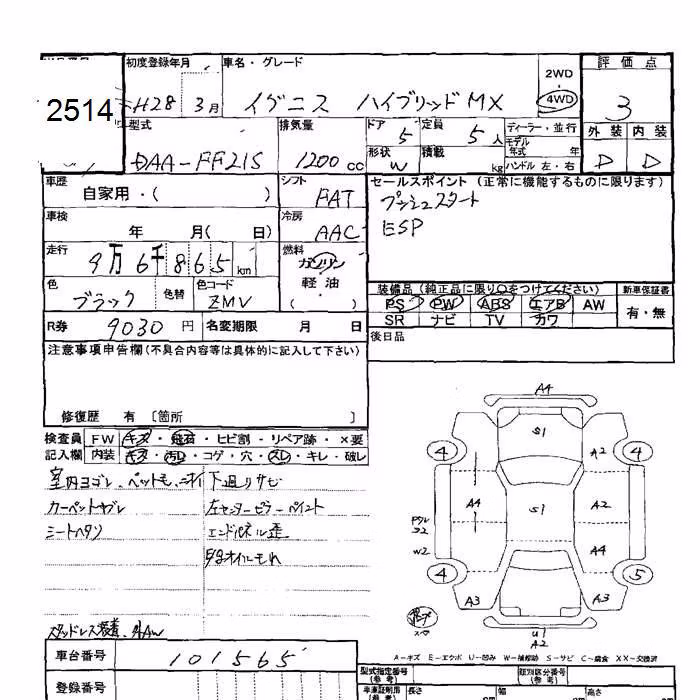 初度登録年月 車名・グレード 2WD 評価点
2514 H28 3月 イグニス ハイブリッド MX 4WD 3
型式 排気量 ドア 5 定員 5人 ディーラー・並行 外装 内装
モデル年式 年
DAA-FF21S 1200cc 形状 W 積載 kg ハンドル 左・右 D D
車歴 シフト セールスポイント (正常に機能するものに限ります)
自家用・( ) FAT プッシュスタート
車検 冷房 ESP
年 月( 日) AAC
走行 燃料
9万6千865km ガソリン
軽油
色 色替 色コード ( )
ブラック ZMV
装備品 (純正品に限り○をつけてください) 新車保証書
PS PW ABS エアB AW 有・無
SR ナビ TV カワ
R券 9030円 名変期限 月 日
後日品
注意事項申告欄 (不具合内容等は具体的に記入して下さい)
修復歴 有 〔箇所 〕
検査員 FW キズ・飛石・ヒビ割・リペア跡・×要
記入欄 内装 キズ・汚れ・コゲ・穴・スレ・キレ・破レ
室内ヨゴレ、ペット毛、ニオイ 下廻りサビ
カーペットヤブレ 左センターピラーペイント
シートヘタリ エンドパネル歪
オイルもれ
スタッドレス装着、社外AW
A4
S1
4 4
A2
A4 S1 A2
W2 A4
4 5
A3 A3
スペア
U1
A2
A-キズ E-エクボ U-凹み W-補修跡 S-サビ C-腐食 XX-交換済
車台番号 101565
登録番号
型式指定番号 (参考) 類別区分番号 (参考)
長さ 幅 高さ